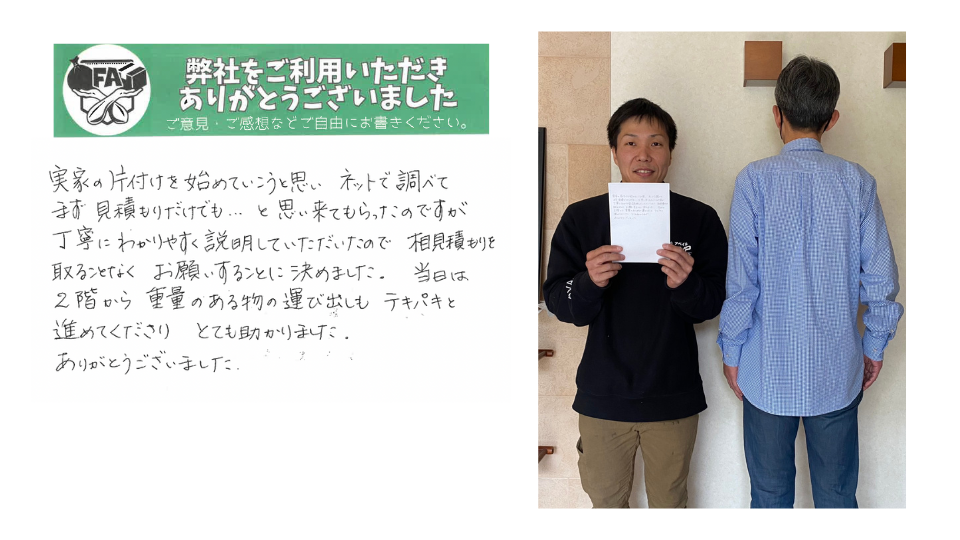 FA
弊社をご利用いただき
ありがとうございました
ご意見・ご感想などご自由にお書きください。
実家の片付けを始めていこうと思い ネットで調べて
まず 見積もりだけでも… と思い来てもらったのですが
丁寧にわかりやすく説明していただいたので 相見積もりを
取ることなく お願いすることに決めました。 当日は
2階から 重量のある物の運び出しも テキパキと
進めてくださり とても助かりました.
ありがとうございました.